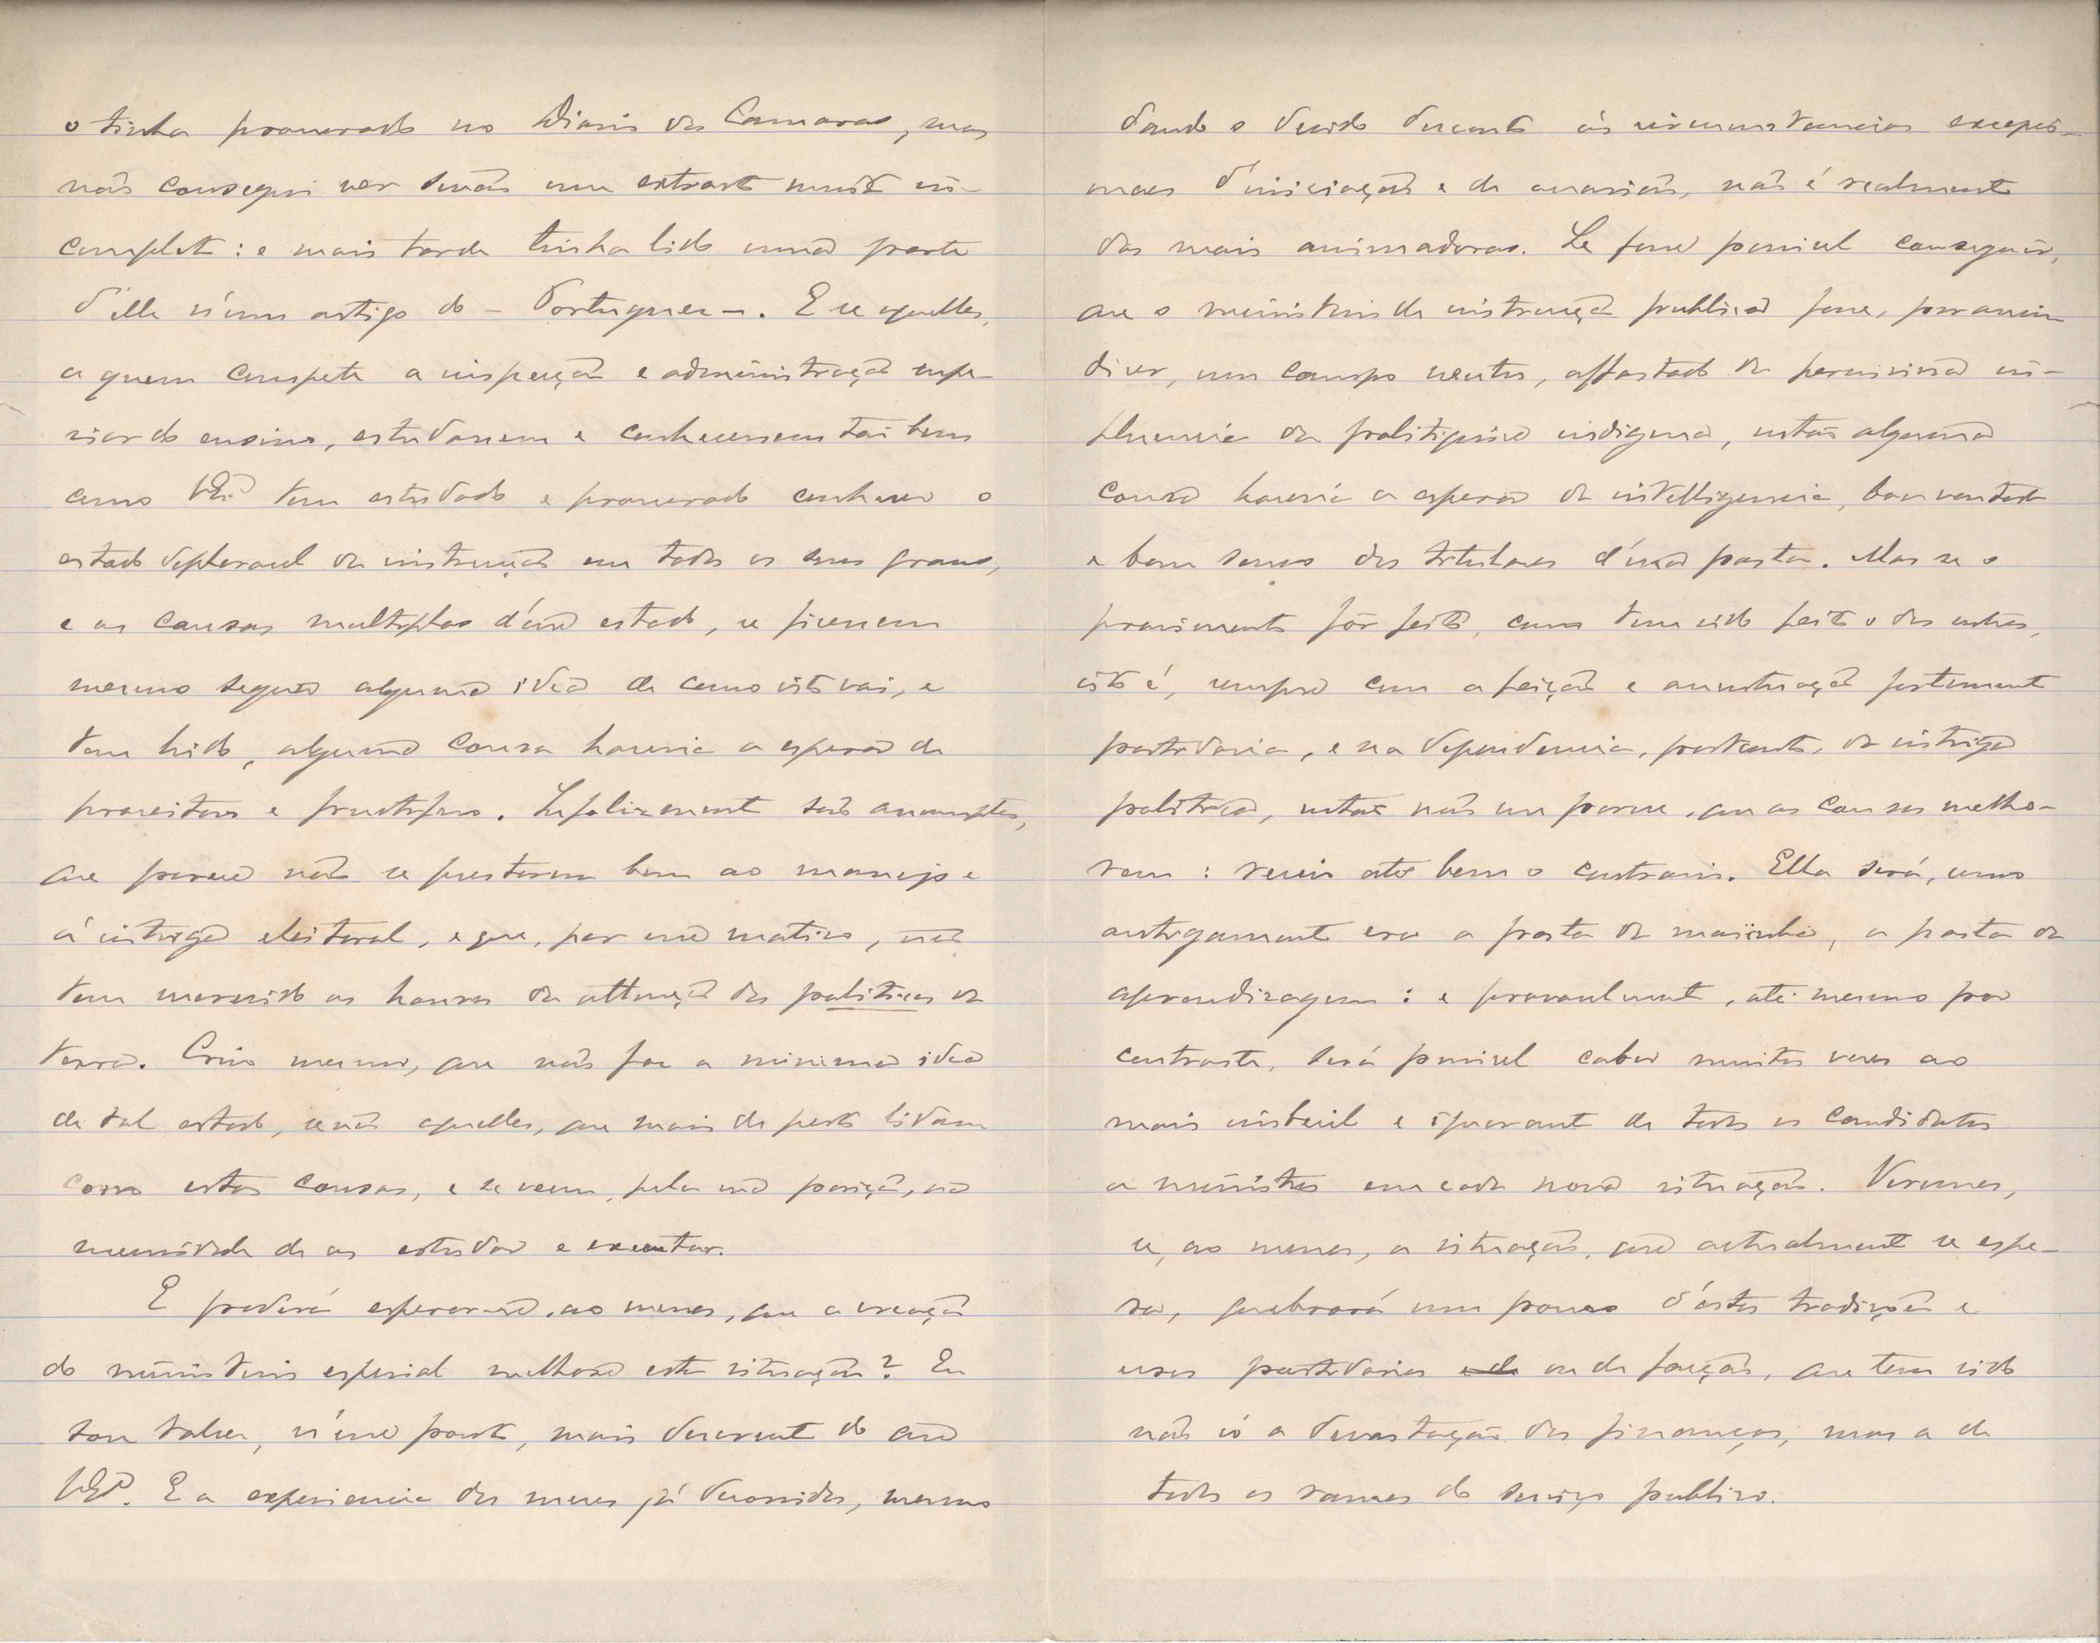 o tinha procurado no Diario das Camaras, mas
não consegui ver senão um extracto muito in-
completo: e mais tarde tinha lido uma parte
d'elle n'um artigo do - Portuguez -. E se aquelles,
a quem compete a inspecção e administração supe-
rior do ensino, estudassem e conhecessem tão bem
como VExª tem estudado e procurado conhecer o
estado deploravel da instrucção em todos os seus graus,
e as causas multiplas d'esse estado, se fizessem
mesmo sequer alguma idea de como isto vai, e
tem hido, alguma cousa haveria a esperar de
proveitoso e fructifero. Infelizmente são assumptos,
que parece não se prestarem bem ao manejo e
á intriga eleitoral, e que, por esse motivo, não
tem merecido as honras da attenção dos politicos da
terra. Creio mesmo, que não faz a minima idea
de tal estado, senão aquelles, que mais de perto lidam
com estas cousas, e se veem, pela sua posição, na
necessidade de as estudar e executar.
E poderá esperar-se, ao menos, que a creação
do ministerio especial melhore esta situação? Eu
sou talvez, n'esse ponto, mais descrente do que
VExª. E a experiencia dos mezes já decorridos, mesmo
dando o devido desconto ás circumstancias excepcio-
naes d'iniciação e de occasião, não é realmente
das mais animadoras. Se fosse possivel conseguir,
que o ministerio da instrucção publica fosse, por assim
dizer, um campo neutro, affastado da perniciosa in-
fluencia da politiquice indigena, então alguma
cousa haveria a esperar da intelligencia, boa vontade
e bom senso dos titulares d'essa pasta. Mas se o
provimento fôr feito, como tem sido feito o das outras,
isto é, sempre com a feição e accentuação fortemente
partidaria, e na dependencia, portanto, da intriga
politica, então não me parece, que as cousas melho-
rem: receio até bem o contrario. Ella será, como
antigamente era a pasta da marinha, a pasta da
aprendizagem: e provavelmente, até mesmo por
contraste, será possivel caber muitas vezes ao
mais imbecil e ignorante de todos os candidatos
a ministros em cada nova situação. Veremos,
se, ao menos, a situação, que actualmente se espe-
ra, quebrará um pouco d'estas tradições e
usos partidarios ou de facção, que tem sido
não só a devastação das finanças, mas a de
todos os ramos do serviço publico.